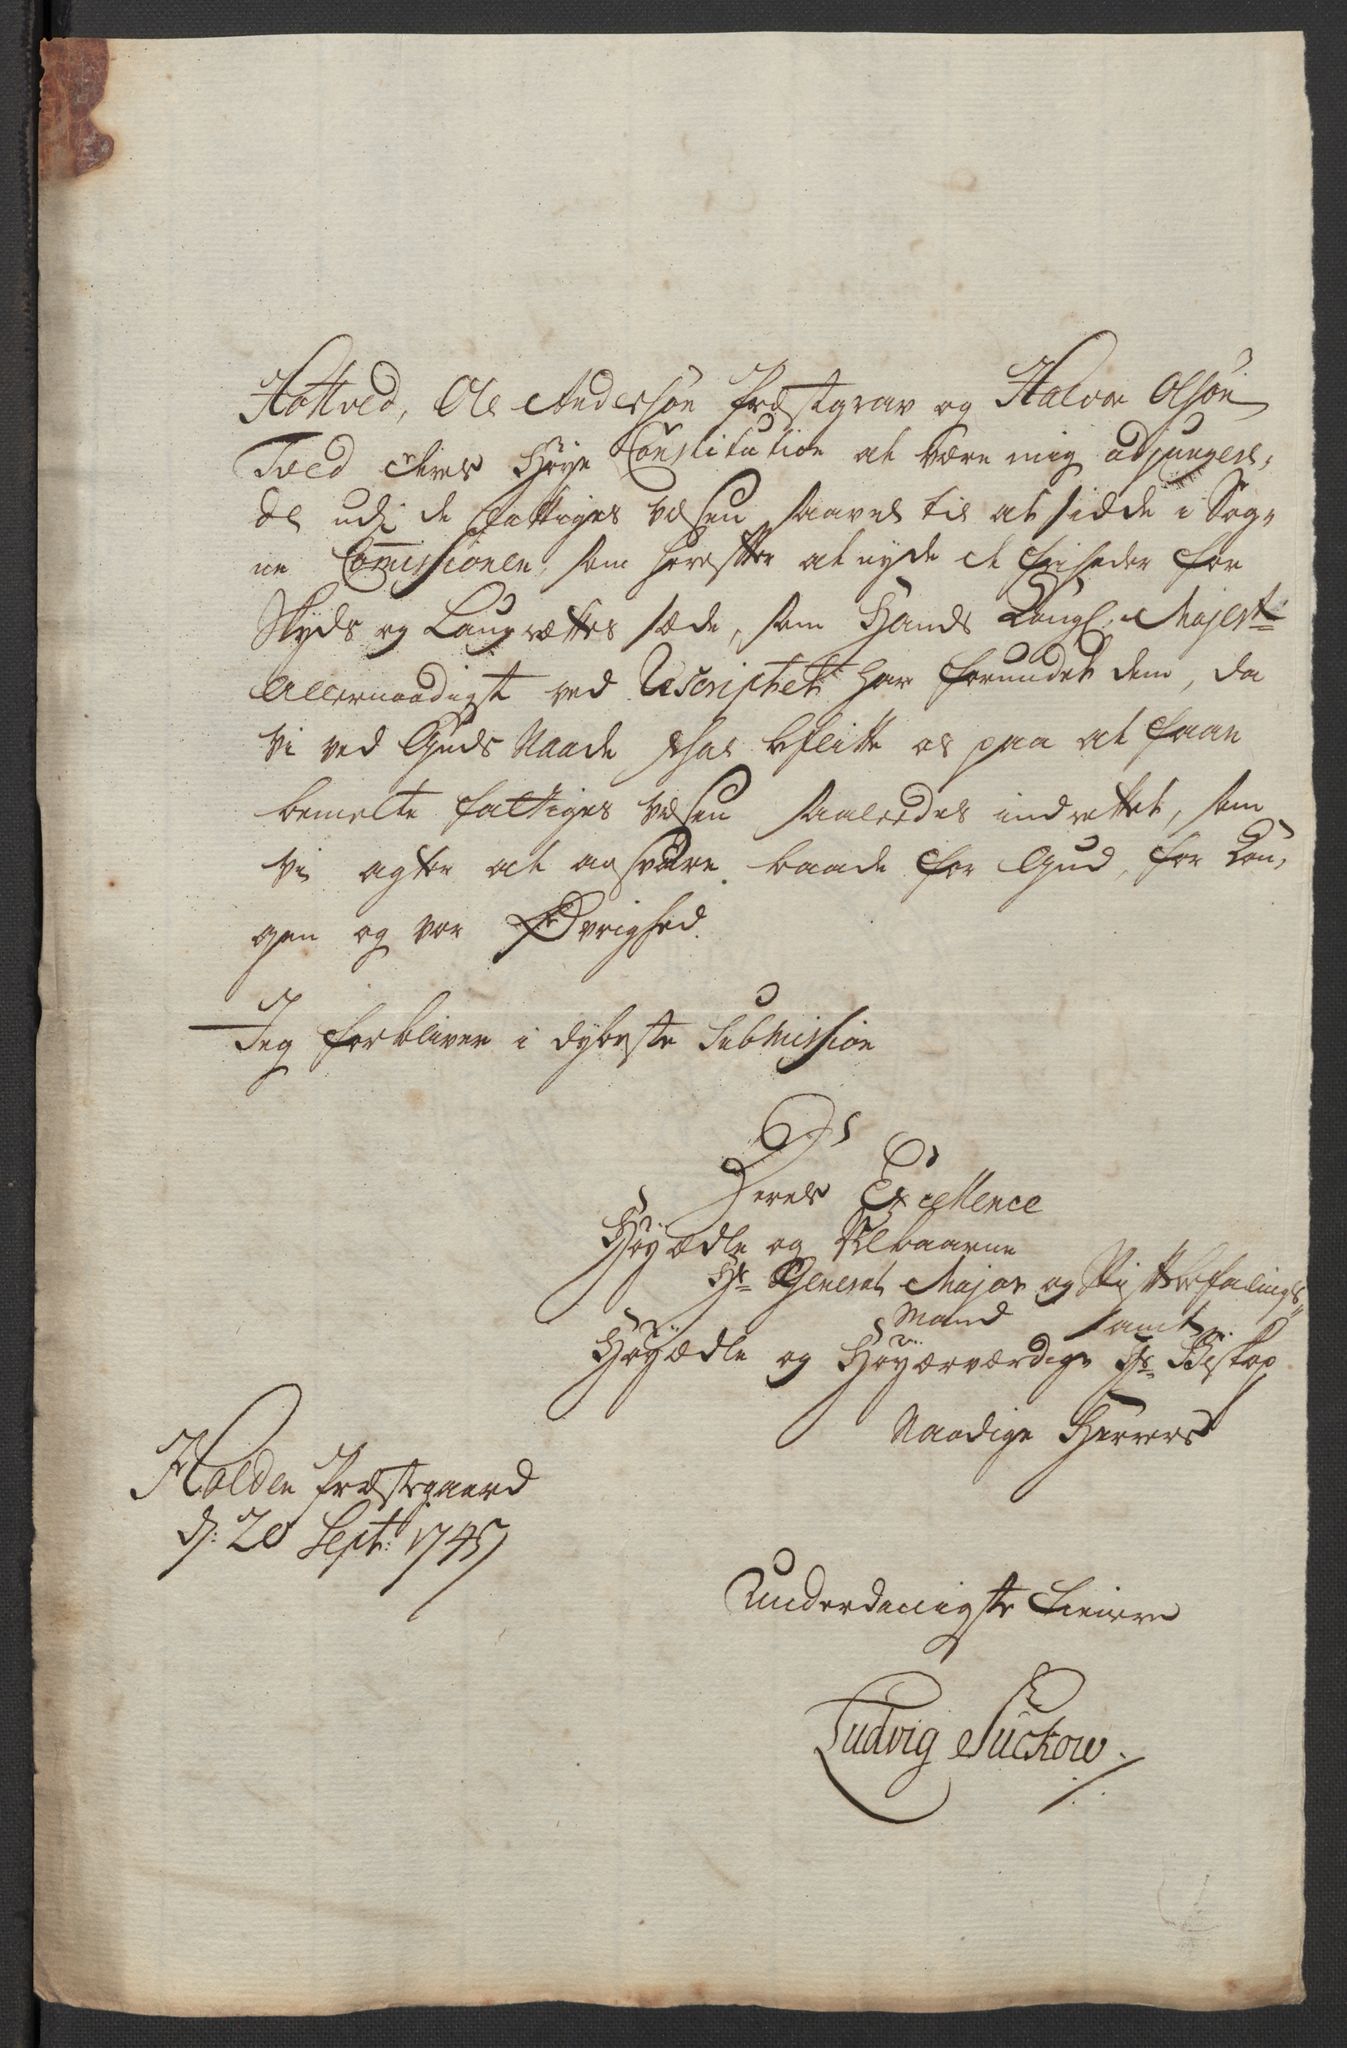 Hotved, Ole Andersøn Præstgrav og Halvor Olsøn
Tved deres Høye Constitution at være mig adjungere,
de udj de Fattiges Væsen, saavel til at sidde i Sog,
ne Com̄issionen, som herefter at nyde de friheder for
Skyds og Laugrættes sæde, som Hands Kongl: Majest:
Allernaadigst ved Rescriptet har forundet dem, da
Vi ved Guds Naade skal beflitte os paa at faae
bemelte Fattiges Væsen saaledes indrettet, som
Vi agter at ansvare baade for Gud, for Kon,
gen og vor Øvrighed.
Jeg forbliver i dybeste Submission
Deres Excellence
Høyædle og Velbaarne
Hr General Major og Stiftbefalings,,
Mand samt
Høyædle og Høyærværdige Hr Biskop
Naadige Herrers
Holden Præstegaard
d: 20 Sept: 1745
Underdanigste tienere
Ludvig Suckow.